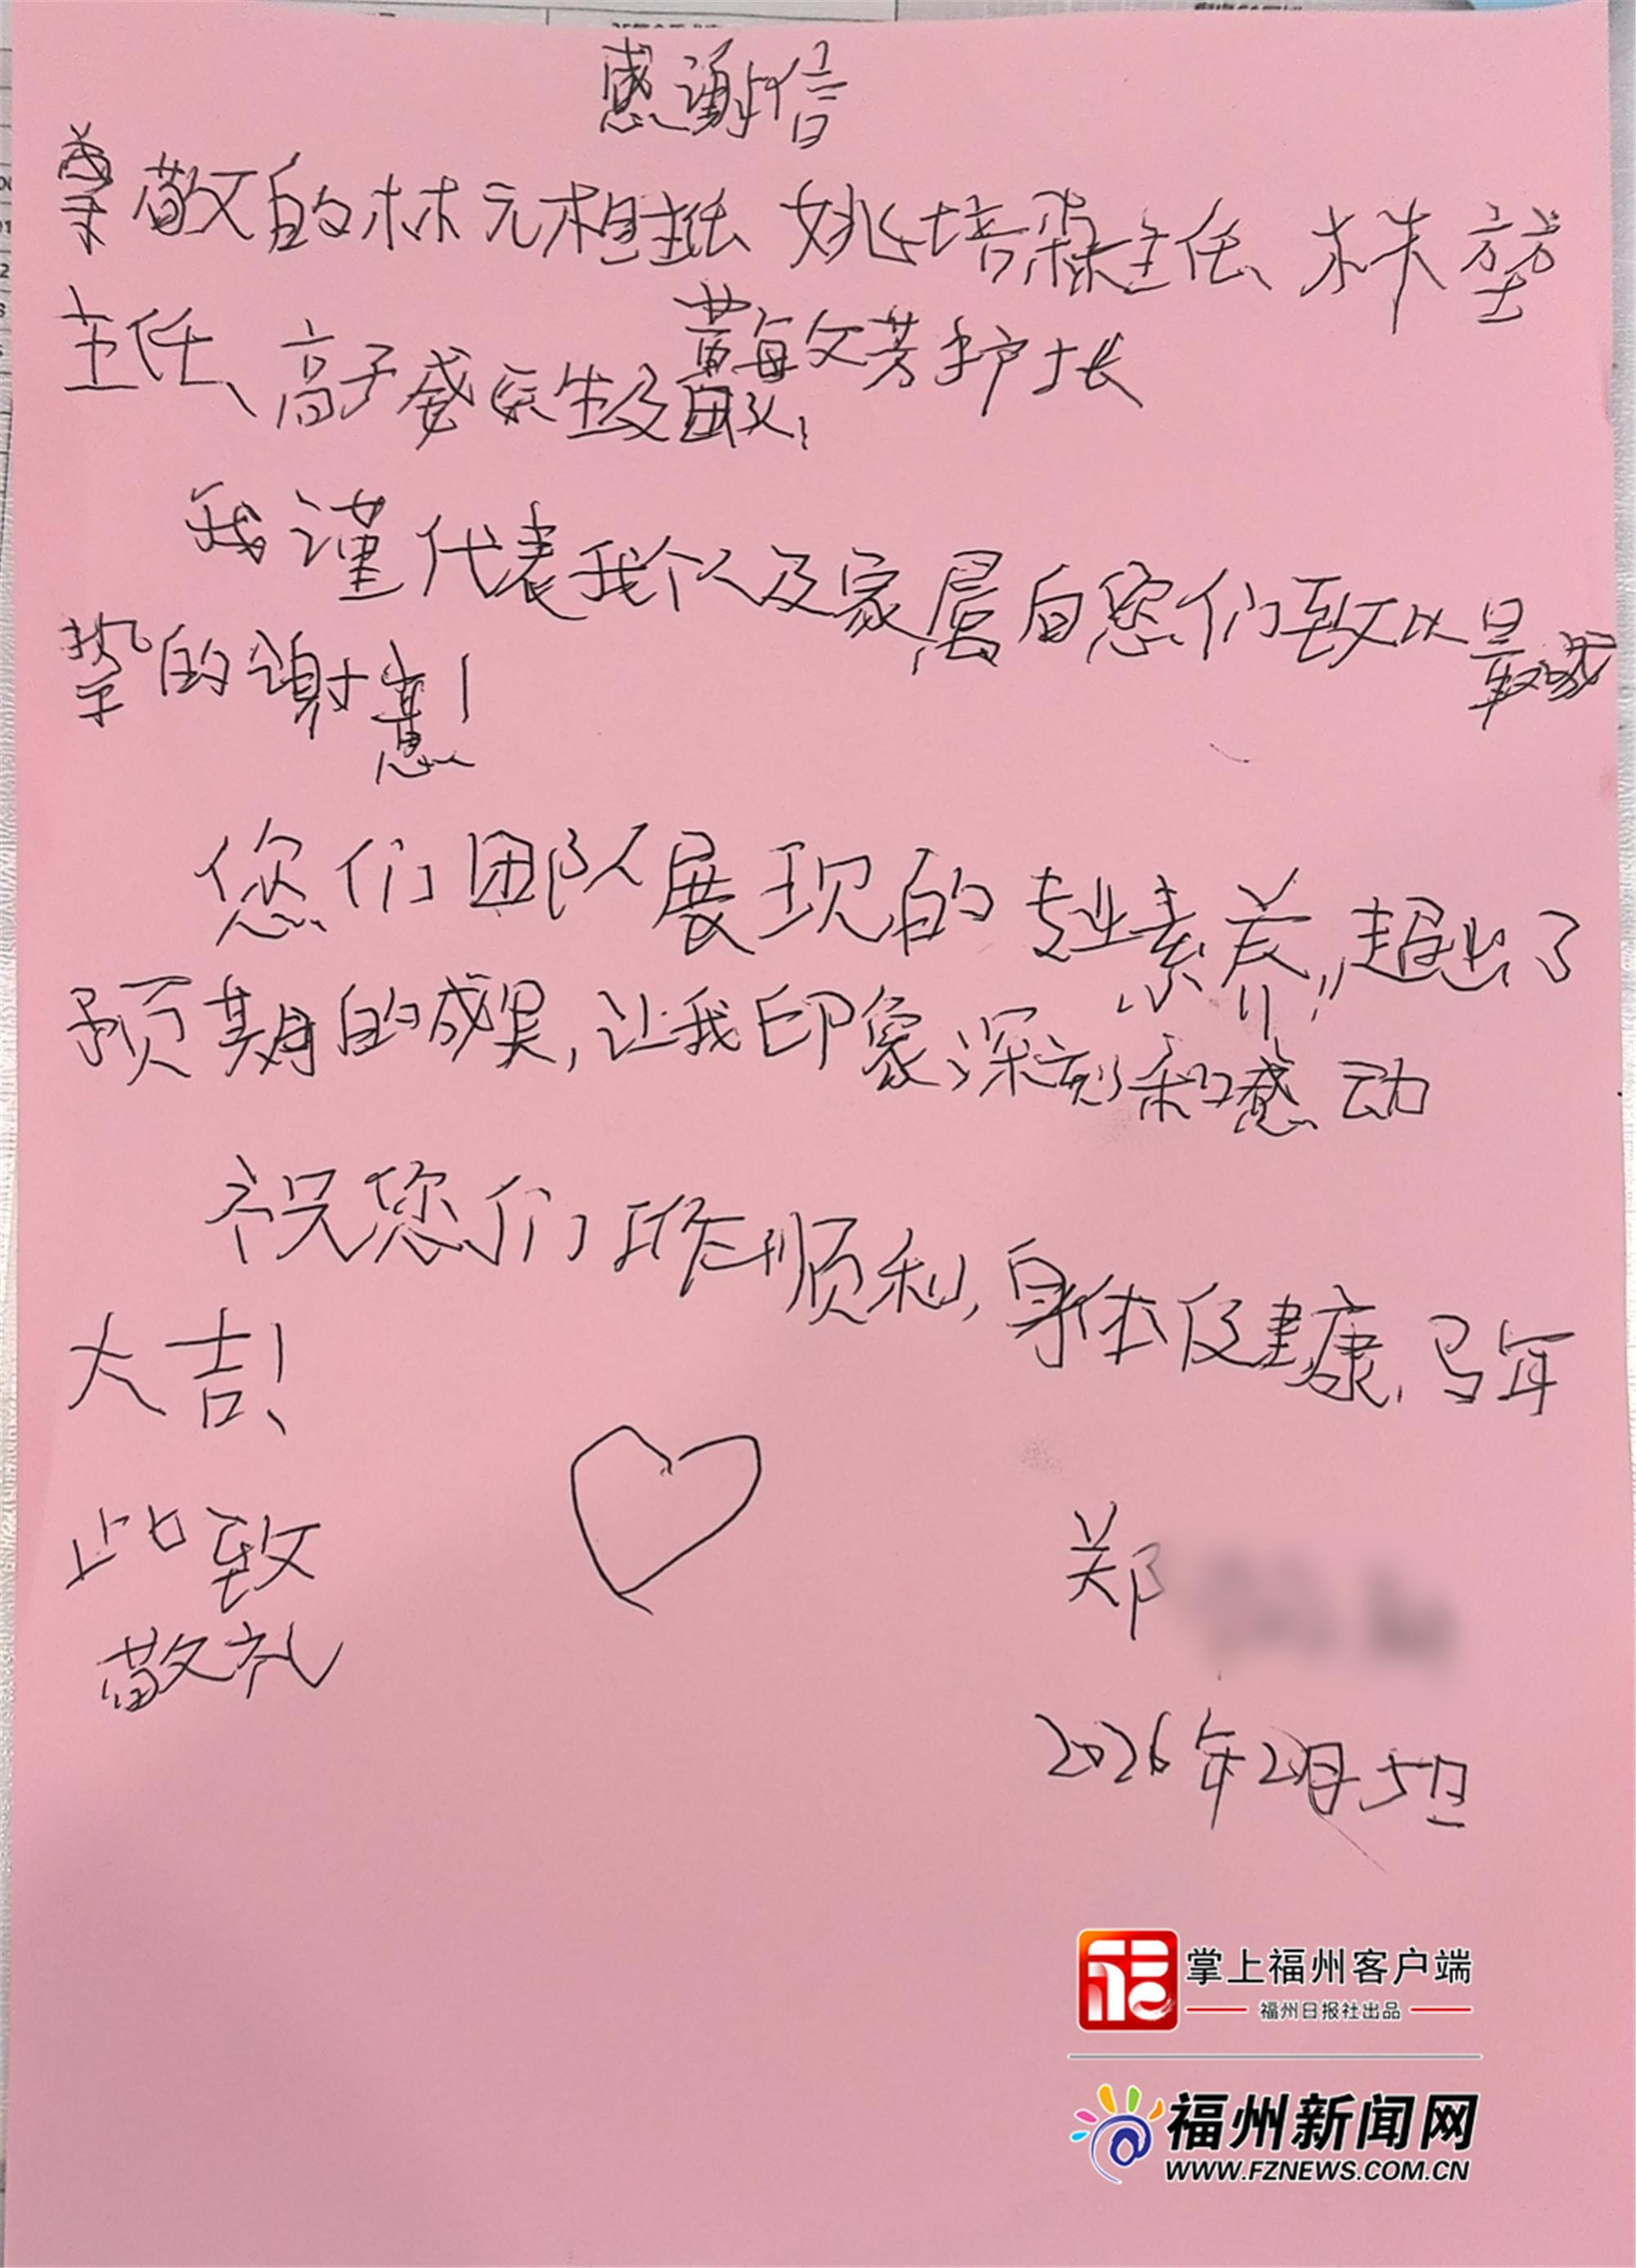 感谢信
尊敬的林元相主任、姚培森主任、林堃
主任、高子盛医生及黄梅文芳护长
我谨代表我个人及家属向您们致以最诚
挚的谢意！
您们团队展现的专业素养，超出了
预期的成果，让我印象深刻和感动
祝您们工作顺利，身体健康，马年
大吉！
此致
敬礼
郑
2026年2月5日
掌上福州客户端
福州日报社出品
福州新闻网
WWW.FZNEWS.COM.CN